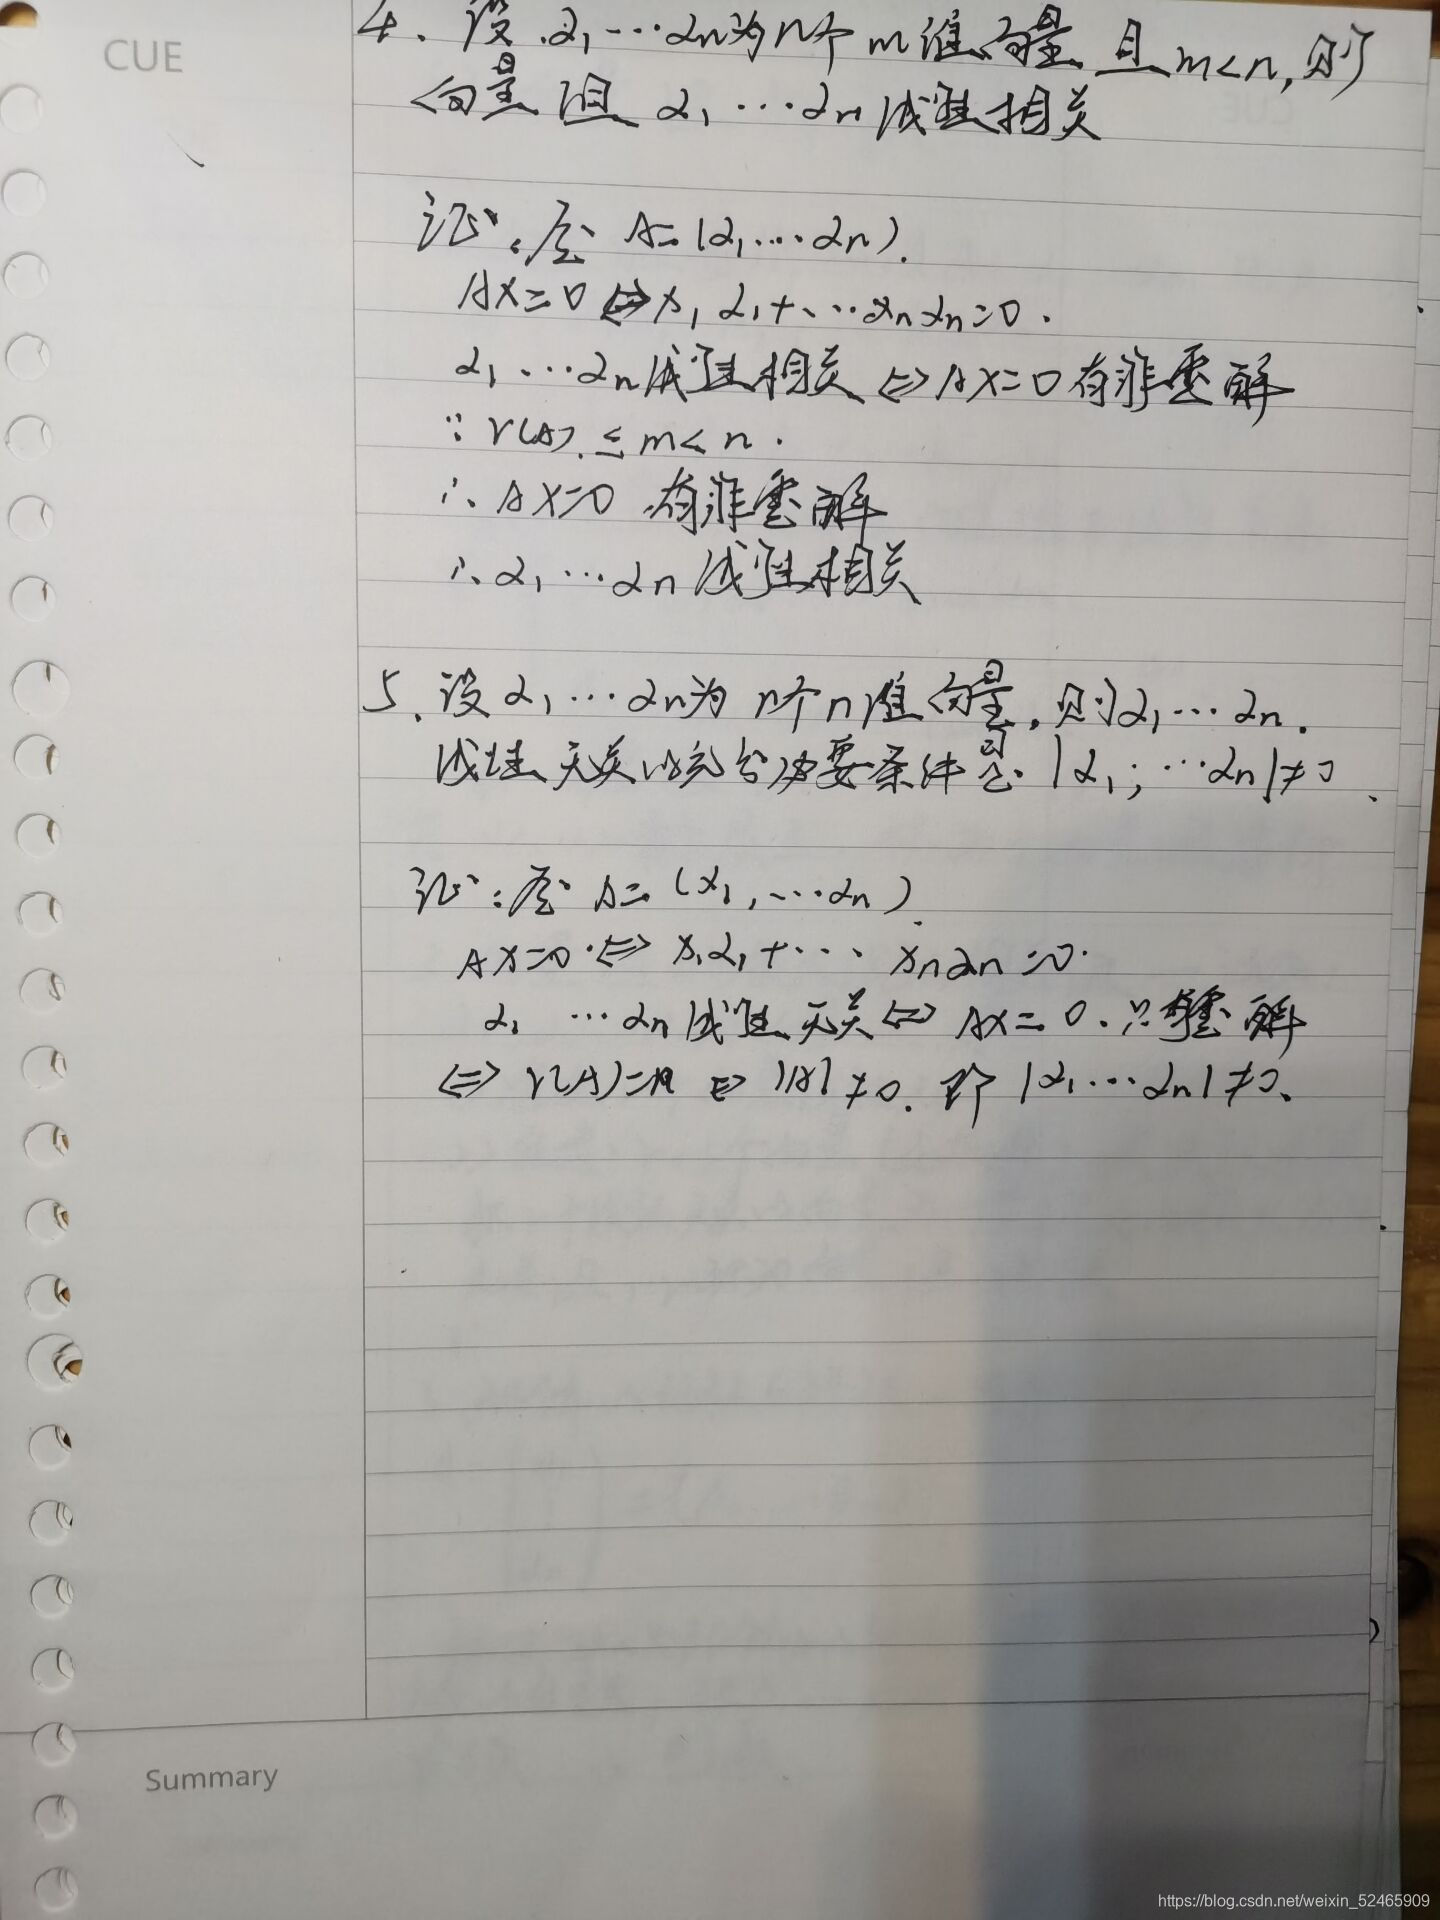 CUE
4. 设 α₁ … αₙ为n个m维向量 且m<n,则
向量组 α₁ … αₙ 线性相关
证:令 A=(α₁ … αₙ).
AX=0 ⇔ x₁α₁+ … xₙαₙ=0.
α₁ … αₙ线性相关 ⇔ AX=0有非零解
∵ r(A) ≤ m<n.
∴ AX=0 有非零解
∴ α₁ … αₙ 线性相关
5. 设α₁ … αₙ为 n个n维向量,则α₁ … αₙ.
线性无关的充分必要条件是 |α₁, … αₙ|≠0.
证:令 A=(α₁, … αₙ).
AX=0 ⇔ x₁α₁+ … xₙαₙ=0.
α₁ … αₙ线性无关 ⇔ AX=0.只有零解
⇔ r(A)=n ⇔ |A|≠0. 即 |α₁ … αₙ|≠0.
Summary
https://blog.csdn.net/weixin_52465909